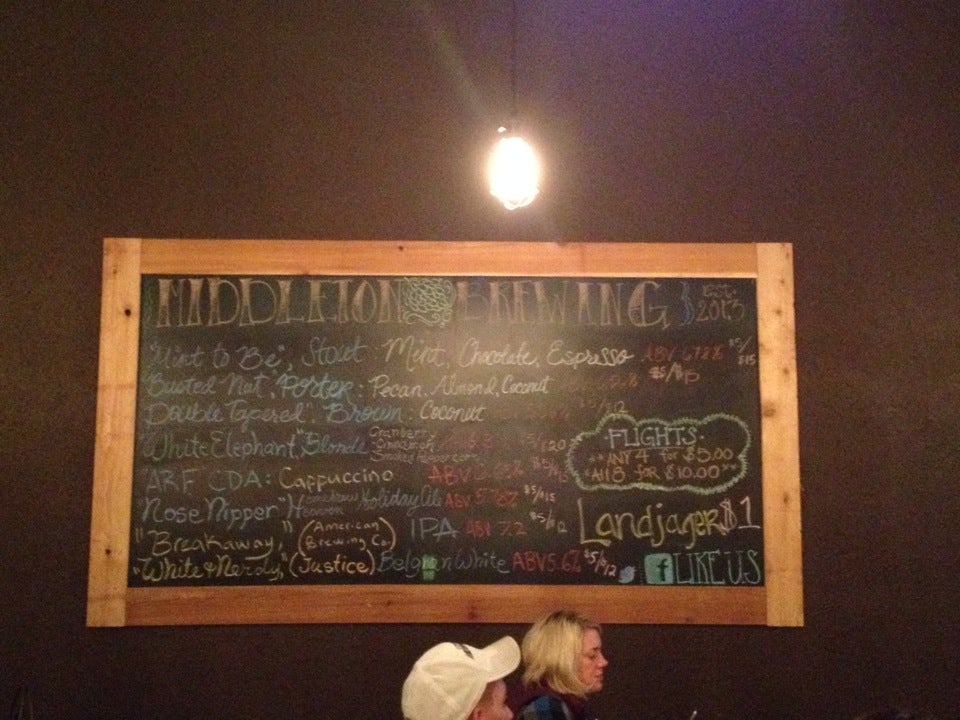 MIDDLETON BREWING Est. 2013
"Mint to Be", Stout: Mint, Chocolate, Espresso ABV 6.78% $5/$15
Busted Nut, Porter: Pecan, Almond, Coconut $5/$15
Double Tapered". Brown: Coconut
White Elephant, "Blonde Cranberry
Cinnamon
FLIGHTS:
ANY 4 for $5.00
All 8 for $10.00
ARF CDA: Cappuccino ABV
"Nose Nipper" Homebrew Heaven Holiday Ale ABV
Landjager $1
"Breakaway," (American Brewing Co.) IPA ABV 7.2 $5/$12
"White & Nerdy," (Justice) Belgian White ABV 5.6% $5/$12
f LIKE US